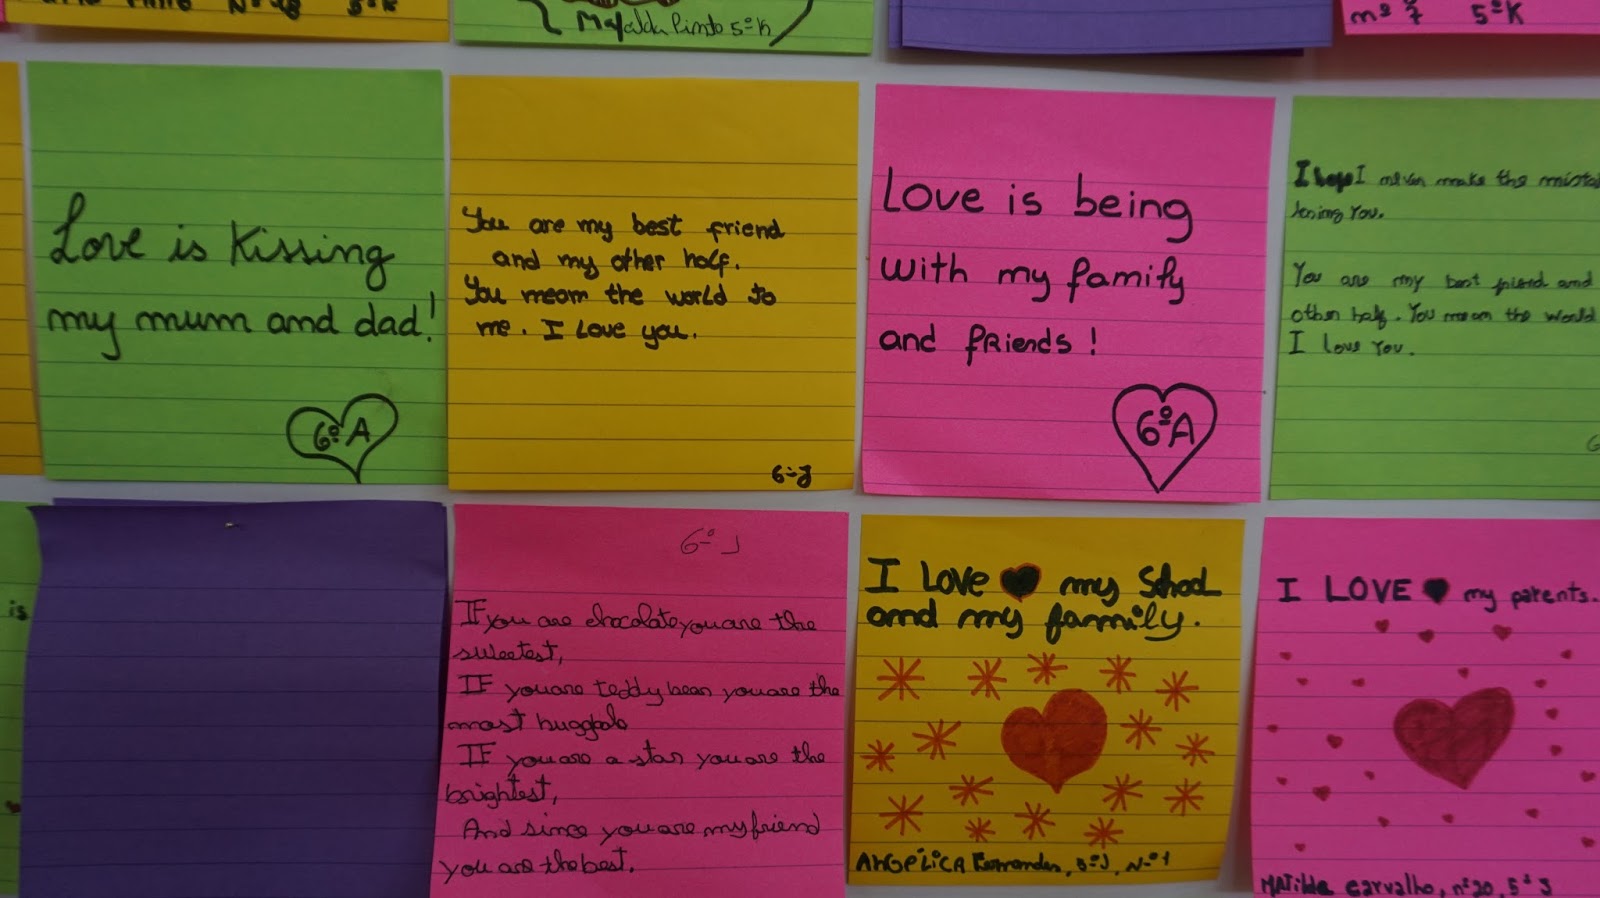 Nº 28 5ºK
Mafalda Pinto 5ºK
nº 7 5ºK
Love is Kissing
my mum and dad!
6ºA
You are my best friend
and my other half.
You mean the world to
me. I Love you.
6ºJ
Love is being
with my family
and friends!
6ºA
I hope I never make the mista
You.
You are my best friend and
other half. You mean the world
I love You.
6
is
6º J
If you are chocolate you are the
sweetest,
IF you are teddy bear you are the
most huggable
IF you are a star you are the
brightest,
And since you are my friend
you are the best.
I Love my School
and my family.
ANGÉLICA Fernandes, 5ºJ, Nº1
I LOVE my parents.
MATilde carvalho, nº20, 5º J